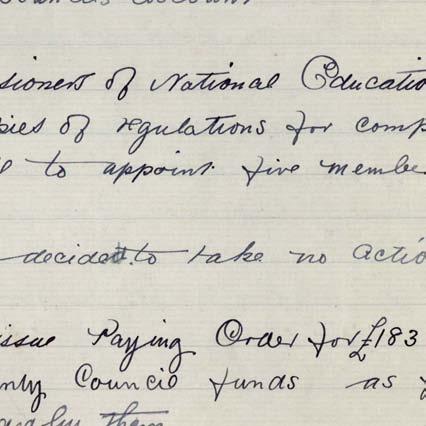 sioners of National Educatio
pies of regulations for comp
to appoint five membe
decided to take no actio
issue Paying Order for £183
nty Council funds as
them